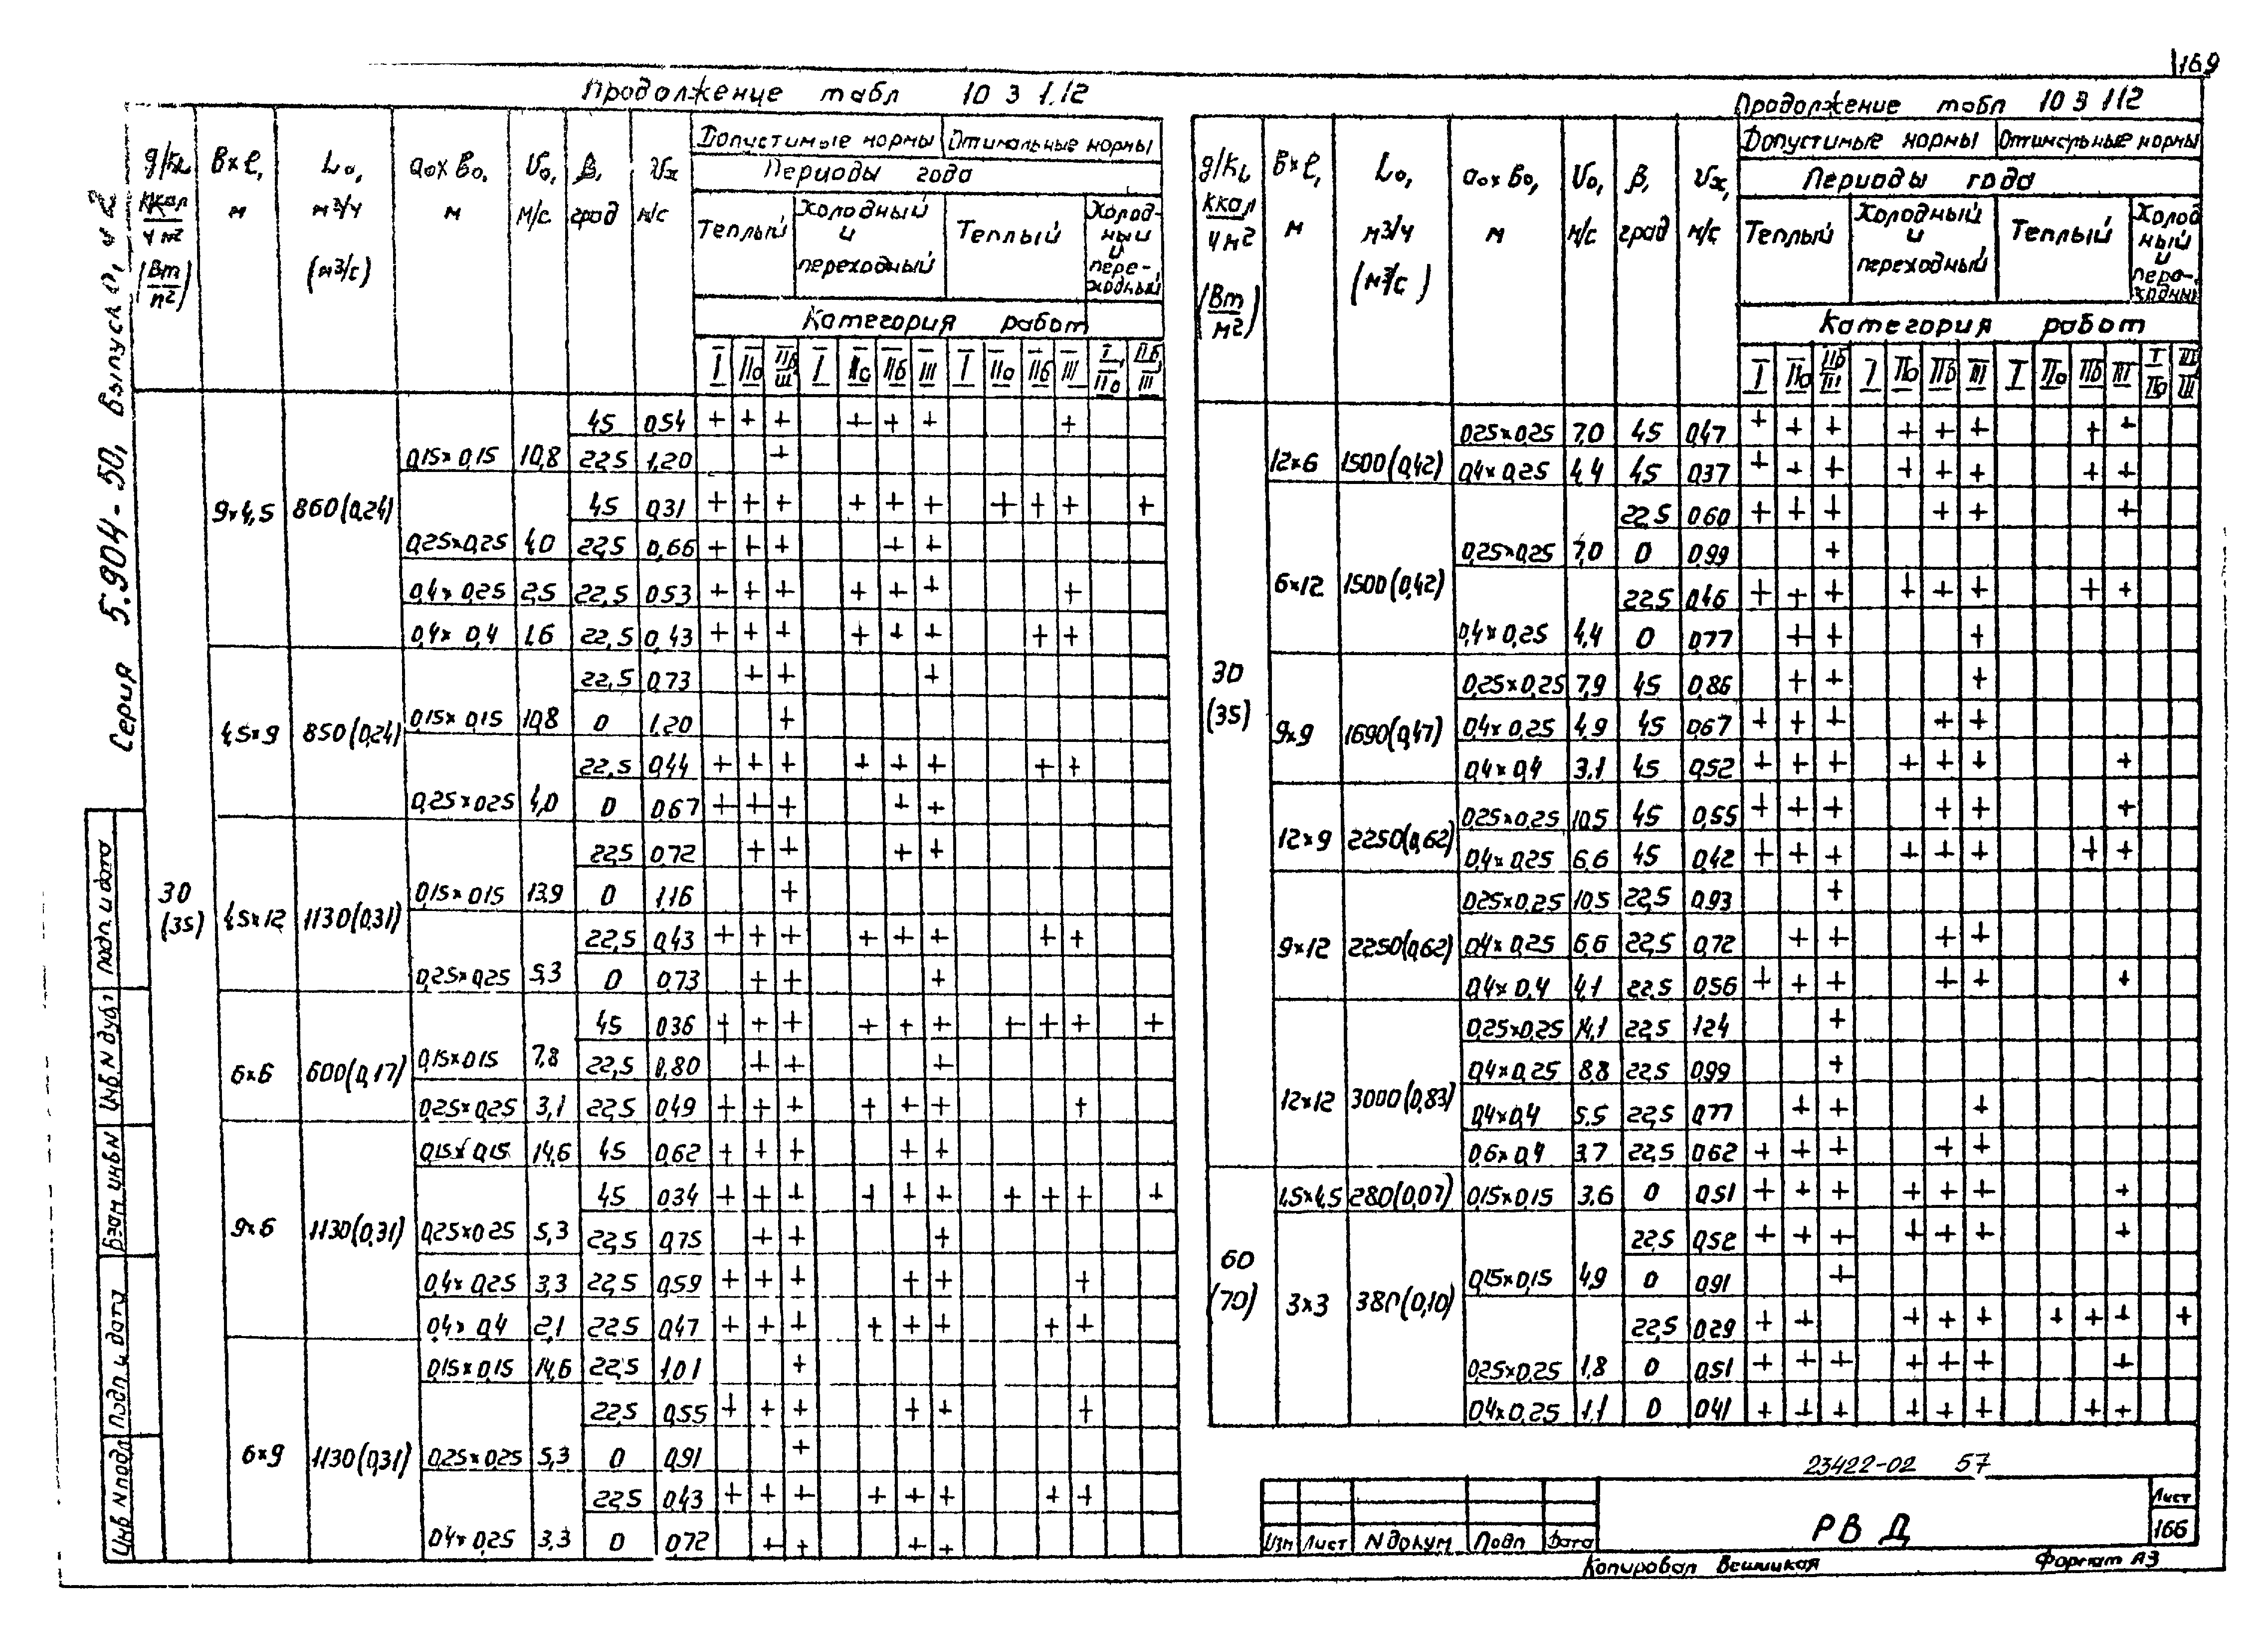 169
Продолжение табл 10 3 1.12
g/Fс, ккал/ч м2 (Вт/м2) | в×l, м | Lо, м3/ч (м3/с) | ао×во, м | Uо, м/с | β, град | Uх м/с | Допустимые нормы | Оптимальные нормы
Периоды года
Теплый | Холодный и переходный | Теплый | Холодный и переходный
Категория работ
I | IIа | IIб III | I | IIа | IIб | III | I | IIа | IIб | III | I, IIа | IIб, III
30 (35)
9×4,5 860(0,24)
45 0,54 + + + + + + +
0,15×0,15 10,8 22,5 1,20 +
45 0,31 + + + + + + + + + +
0,25×0,25 4,0 22,5 0,66 + + + + +
0,4×0,25 2,5 22,5 0,53 + + + + + + +
0,4×0,4 1,6 22,5 0,43 + + + + + + + +
4,5×9 850(0,24)
22,5 0,73 + + +
0,15×0,15 10,8 0 1,20 +
22,5 0,44 + + + + + + + +
0,25×0,25 4,0 0 0,67 + + + + +
4,5×12 1130(0,31)
22,5 0,72 + + + +
0,15×0,15 13,9 0 1,16 +
22,5 0,43 + + + + + + + +
0,25×0,25 5,3 0 0,73 + + +
6×6 600(0,17)
45 0,36 + + + + + + + + + +
0,15×0,15 7,8 22,5 0,80 + + +
0,25×0,25 3,1 22,5 0,49 + + + + + + +
9×6 1130(0,31)
0,15×0,15 14,6 45 0,62 + + + + +
45 0,34 + + + + + + + + + +
0,25×0,25 5,3 22,5 0,75 + + +
0,4×0,25 3,3 22,5 0,59 + + + + + +
0,4×0,4 2,1 22,5 0,47 + + + + + + + +
6×9 1130(0,31)
0,15×0,15 14,6 22,5 1,01 +
22,5 0,55 + + + + + +
0,25×0,25 5,3 0 0,91 +
22,5 0,43 + + + + + + + +
0,4×0,25 3,3 0 0,72 + + + +
Продолжение табл 10 3 112
g/Fс ккал/ч м2 (Вт/м2) | в×l, м | Lо, м3/ч (м3/с) | ао×во, м | Uо, м/с | β, град | Uх, м/с | Допустимые нормы | Оптимальные нормы
Периоды года
Теплый | Холодный и переходный | Теплый | Холодный и переходный
Категория работ
I | IIа | IIб III | I | IIа | IIб | III | I | IIа | IIб | III | I IIа | IIб III
30 (35)
12×6 1500(0,42)
0,25×0,25 7,0 45 0,47 + + + + + + + +
0,4×0,25 4,4 45 0,37 + + + + + + + +
6×12 1500(0,42)
22,5 0,60 + + + + + +
0,25×0,25 7,0 0 0,99 +
22,5 0,46 + + + + + + + +
0,4×0,25 4,4 0 0,77 + + +
9×9 1690(0,47)
0,25×0,25 7,9 45 0,86 + + +
0,4×0,25 4,9 45 0,67 + + + + +
0,4×0,4 3,1 45 0,52 + + + + + + +
12×9 2250(0,62)
0,25×0,25 10,5 45 0,55 + + + + + +
0,4×0,25 6,6 45 0,42 + + + + + + + +
9×12 2250(0,62)
0,25×0,25 10,5 22,5 0,93 +
0,4×0,25 6,6 22,5 0,72 + + + +
0,4×0,4 4,1 22,5 0,56 + + + + + +
12×12 3000(0,83)
0,25×0,25 14,1 22,5 1,24 +
0,4×0,25 8,8 22,5 0,99 +
0,4×0,4 5,5 22,5 0,77 + + +
0,6×0,4 3,7 22,5 0,62 + + + + +
60 (70)
4,5×4,5 280(0,07) 0,15×0,15 3,6 0 0,51 + + + + + + +
3×3 380(0,10)
22,5 0,52 + + + + + + +
0,15×0,15 4,9 0 0,91 +
22,5 0,29 + + + + + + + + +
0,25×0,25 1,8 0 0,51 + + + + + + +
0,4×0,25 1,1 0 0,41 + + + + + + + +
23422-02 57
Изм Лист N докум Подп Дата
РВД
Лист
166
Копировал
Формат А3
Серия 5.904-50, Выпуск 0, 1 и 2
Подп. и дата
Инв N дубл
Взам инв N
Подп и дата
Инв N подл